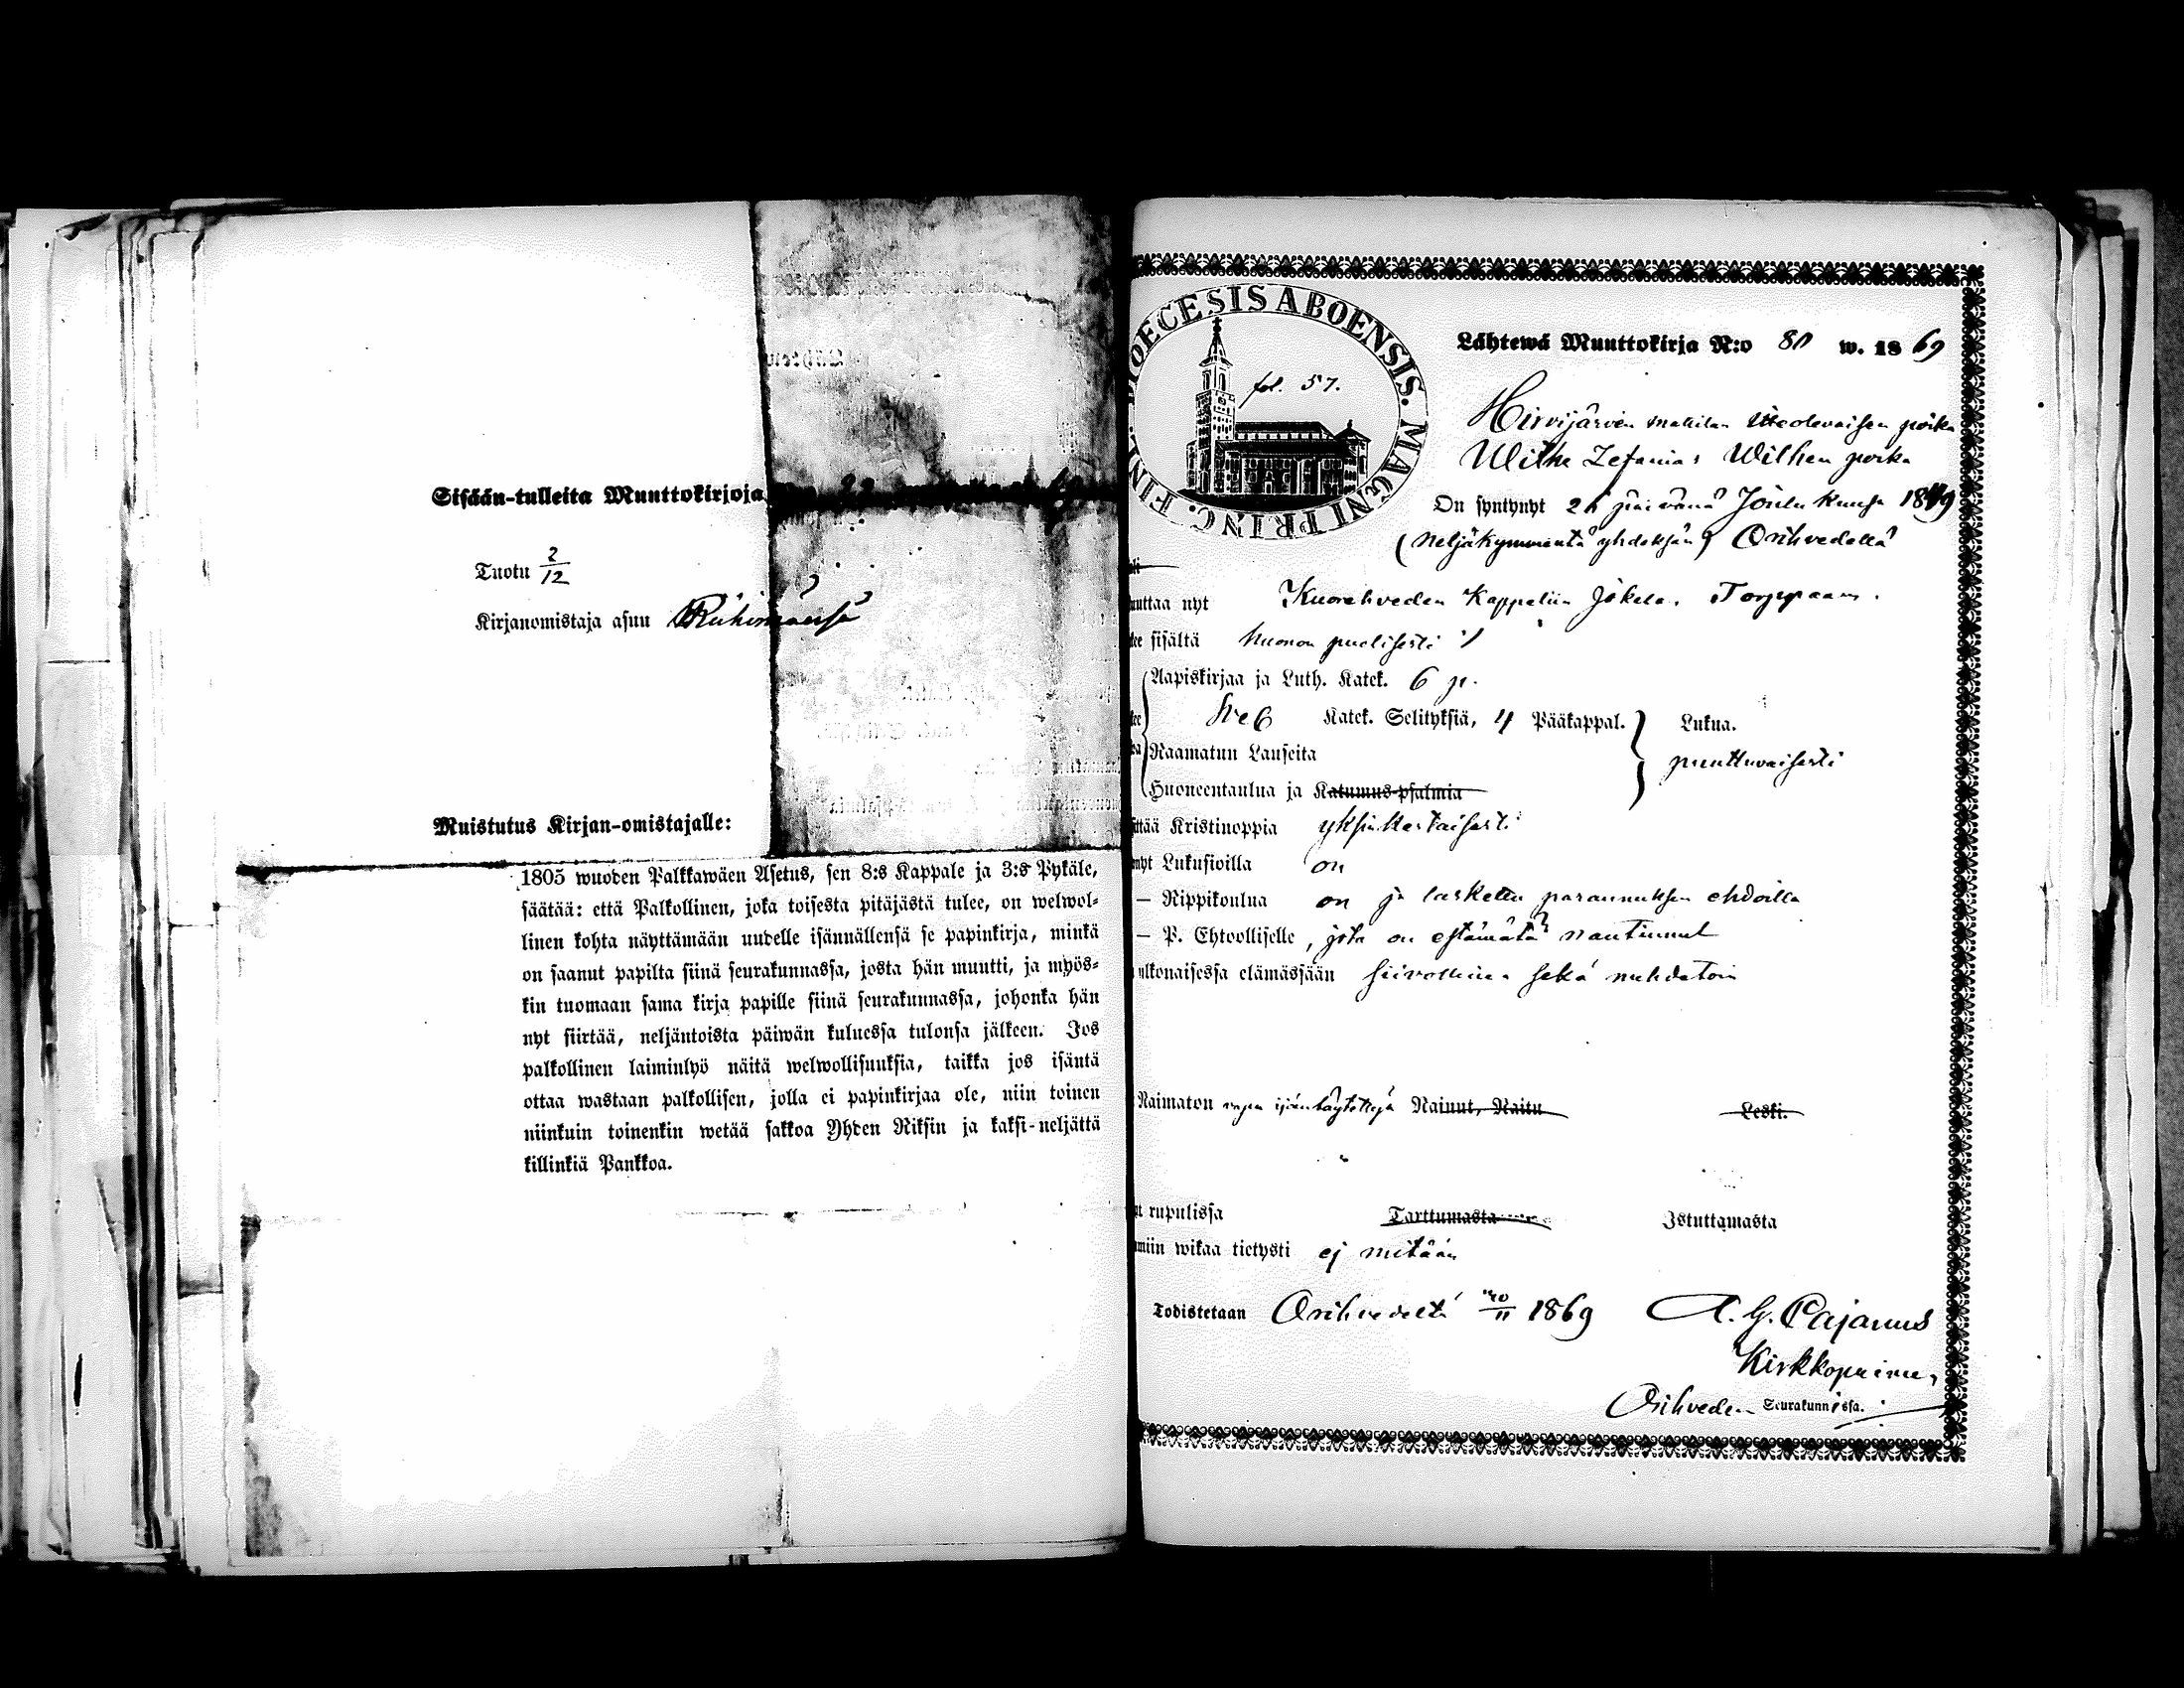 Sisään-tulleita Muuttokirjoja
Tuotu 2/12
Kirjanomistaja asuu
Muistutus Kirjan-omistajalle:
1805 wuoden Palkkawäen Asetus, sen 8:s Kappale ja 3:s Pykäle,
säätää: että Palkollinen, joka toisesta pitäjästä tulee, on welwol-
linen kohta näyttämään uudelle isännällensä se papinkirja, minkä
on saanut papilta siinä seurakunnassa, josta hän muutti, ja myös-
kin tuomaan sama kirja papille siinä seurakunnassa, johonka hän
nyt siirtää, neljäntoista päiwän kuluessa tulonsa jälkeen. Jos
palkollinen laiminlyö näitä welwollisuuksia, taikka jos isäntä
ottaa wastaan palkollisen, jolla ei papinkirjaa ole, niin toinen
niinkuin toinenkin wetää sakkoa Yhden Riksin ja kaksi-neljättä
killinkiä Pankkoa.
DIOECESIS ABOENSIS. MAGNI PRINC. FINL.
fol. 57.
Lähtewä Muuttokirja N:o 80 w. 1869
Hirvijärven Mattilan itseolevaisen poika
Wilhe Zefanias Wilhen poika
On syntynyt päivänä Joulu kuusa 1849
(neljäkymmentä yhdeksän) Orihvedellä
uttaa nyt Kuorehveden Kappeliin Jokela, Torppaan.
ee sisältä huonon puolisesti
Aapiskirjaa ja Luth. Katek. 6 p.
Katek. Selityksiä, 4 Pääkappal.
Raamatun Lauseita
Huoneentaulua ja Katumus-psalmia
Lukua.
puuttuvaisesti
ittää Kristinoppia yksinkertaisesti
nyt Lukusioilla on
— Rippikoulua on ja laskettu parannuksen ehdoilla
— P. Ehtoolliselle, jota on estämätä nautinnut
ulkonaisessa elämässään siivollinen sekä nuhdetoin
Naimaton ijän täytettyä Nainut, Naitu Leski.
rupulissa Tarttumasta Istuttamasta
miin wikaa tietysti ej mitään
Todistetaan Orihvedeltä 1869 A. G. Cajanus
Kirkkoherra,
Orihveden Seurakunnissa.